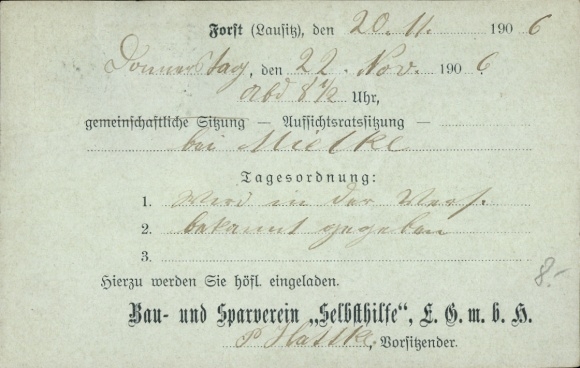 Forst (Lausitz), den 20. 11. 1906
Donnerstag, den 22. Nov. 1906
Abd 8 1/2 Uhr,
gemeinschaftliche Sitzung — Aufsichtsratssitzung —
bei Mielke
Tagesordnung:
1. Wird in der Vers.
2. bekannt gegeben
3.
Hierzu werden Sie höfl. eingeladen.
8.-
Bau- und Sparverein „Selbsthilfe“, E. G. m. b. H.
P Hattke, Vorsitzender.